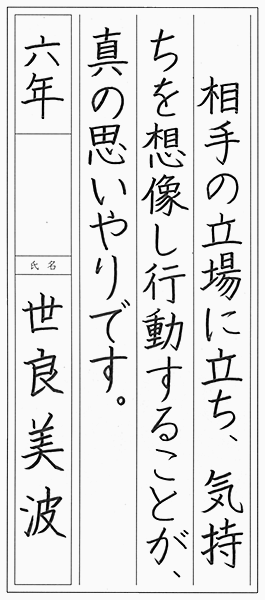 相手の立場に立ち、気持
ちを想像し行動することが、
真の思いやりです。
六年
氏名
世良美波